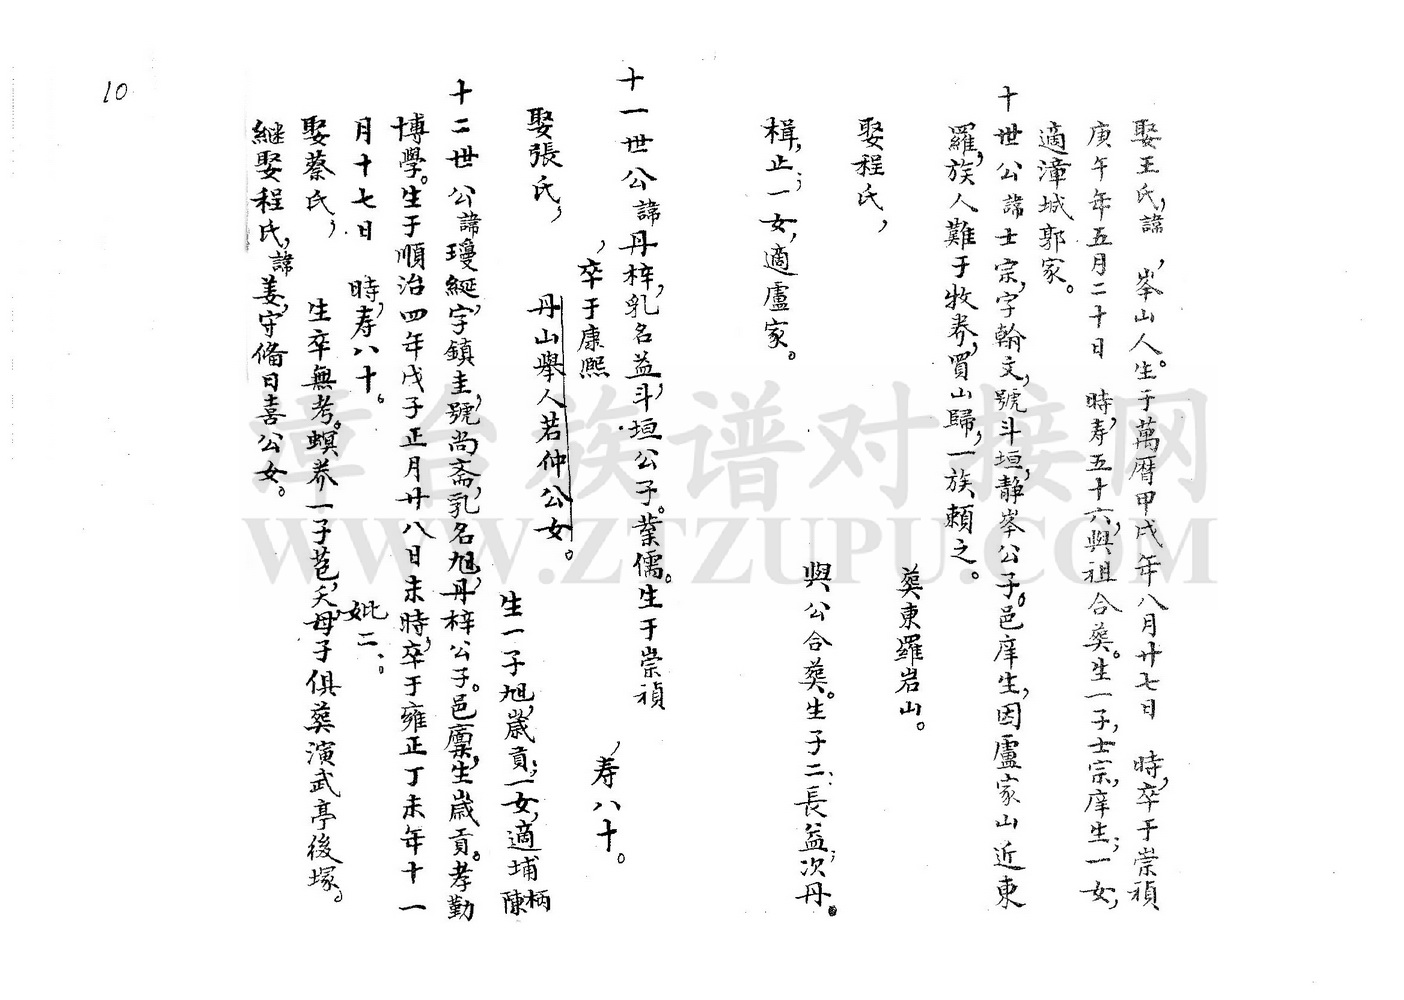 娶王氏,諱　,峯山人。生于萬曆甲戌年八月廿七日　時,卒于崇禎
庚午年五月二十日　時,寿五十六,與祖合葬。生一子,士宗,庠生;一女,
適漳城郭家。
十世公諱士宗,字翰文,號斗垣,靜峯公子。邑庠生,因盧家山近東
羅,族人難于牧养,買山歸,一族頼之。
葬東羅岩山。
娶程氏,
與公合葬。生子二:長益;次丹。
楫,止;一女,適盧家。
十一世公諱丹梓,乳名益,斗垣公子。業儒。生于崇禎
,卒于康熙　,寿八十。
娶張氏,　丹山舉人若仲公女。
生一子旭,歲貢;一女,適埔柄陳
十二世公諱瓊綖,字鎮圭,號尚斋,乳名旭,丹梓公子。邑廪生,歲貢。孝勤
博學。生于順治四年戊子正月廿八日未時,卒于雍正丁未年十一
月十七日　時,寿八十。　妣二:
娶蔡氏,　生卒無考。螟养一子苞,夭,母子俱葬演武亭後塚。
継娶程氏,諱姜,守俻日喜公女。
10
章台族谱对接网
WWW.ZTZUPU.COM